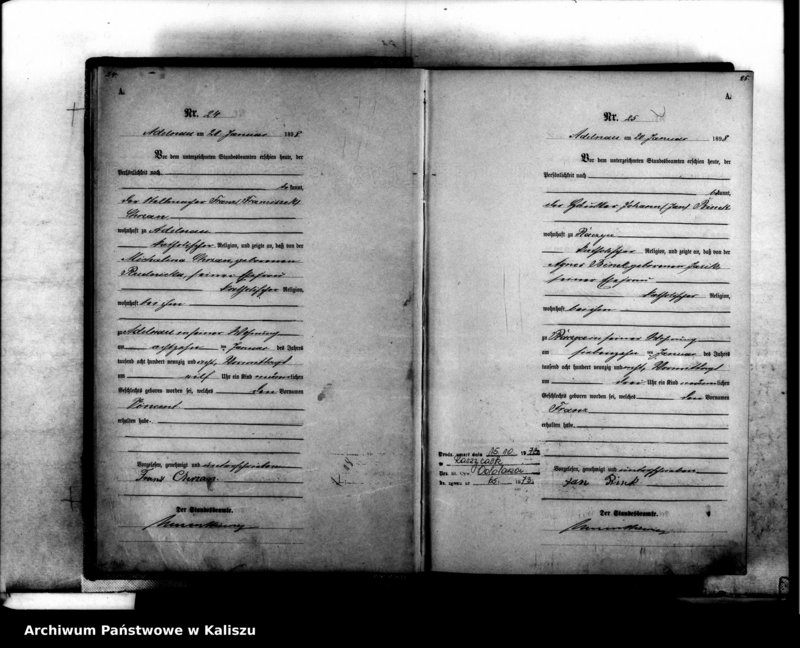 24.
A.
Nr. 24
Adelnau am 20 Januar 1898
Vor dem unterzeichneten Standesbeamten erschien heute, der
Persönlichkeit nach
kannt,
der Franz Franciszek
Chrzan
wohnhaft zu Adelnau
katholischer Religion, und zeigte an, daß von der
Michalina Chrzan geborenen
Rudnicka seiner Ehefrau
katholischer Religion,
wohnhaft bei ihm
zu Adelnau in seiner Wohnung
am achtzehn ten Januar des Jahres
tausend acht hundert neunzig und acht, Vormittags
um elf Uhr ein Kind männlichen
Geschlechts geboren worden sei, welches den Vornamen
Vincent
erhalten habe.
Vorgelesen, genehmigt und unterschrieben
Franz Chrzan
Der Standesbeamte.
25.
A.
Nr. 25
Adelnau am 20 Januar 1898
Vor dem unterzeichneten Standesbeamten erschien heute, der
Persönlichkeit nach
kannt,
der Johann Jan
wohnhaft zu
katholischer Religion, und zeigte an, daß von der
Agnes geborenen
seiner Ehefrau
katholischer Religion,
wohnhaft bei ihm
zu in seiner Wohnung
am siebenzehn ten Januar des Jahres
tausend acht hundert neunzig und acht, Vormittags
um drei Uhr ein Kind männlichen
Geschlechts geboren worden sei, welches den Vornamen
Franz
erhalten habe.
Vorgelesen, genehmigt und unterschrieben
Jan
Der Standesbeamte.
15.10. 1973
w
Odolanów
Nr. 65 1973
Archiwum Państwowe w Kaliszu